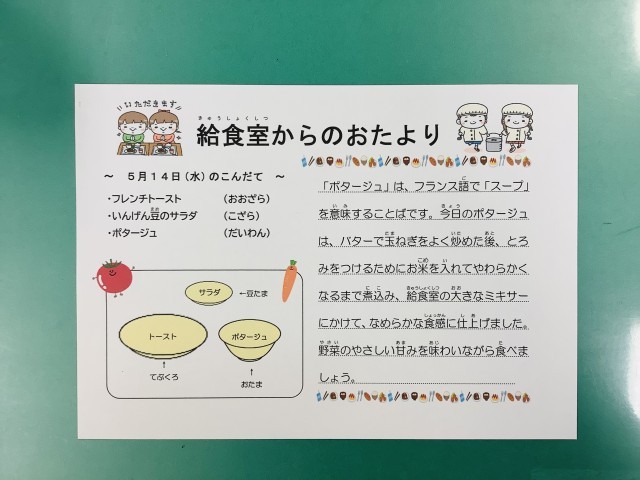 いただきます
きゅうしょくしつ
給食室からのおたより
～ 5月14日（水）のこんだて ～
・フレンチトースト （おおざら）
・いんげん豆のサラダ （こざら）
・ポタージュ （だいわん）
サラダ ←豆たま
トースト
ポタージュ
↑
てぶくろ
↑
おたま
「ポタージュ」は、フランス語で「スープ」
を意味することばです。今日のポタージュ
は、バターで玉ねぎをよく炒めた後、とろ
みをつけるためにお米を入れてやわらかく
なるまで煮込み、給食室の大きなミキサー
にかけて、なめらかな食感に仕上げました。
野菜のやさしい甘みを味わいながら食べま
しょう。